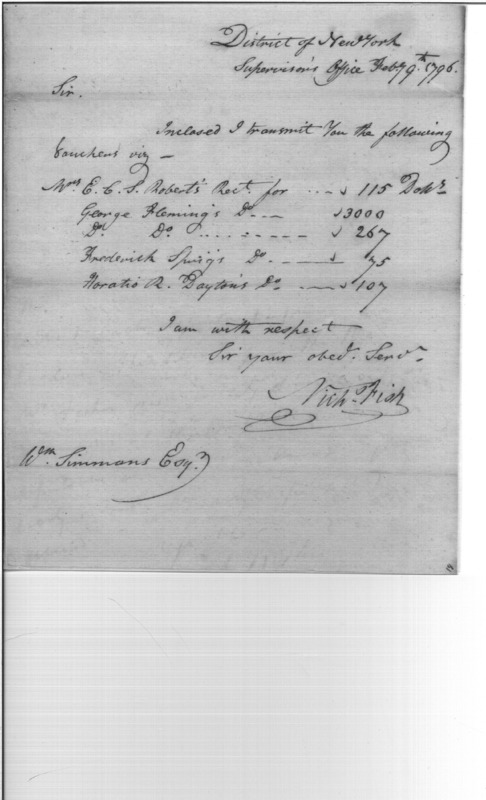 District of New York
Supervisor's Office Feby 9th 1796.
Sir.
Inclosed I transmit You the following
Vouchers viz —
Mrs E. C. S. Robert's Rect. for ... 115 Dolrs
George Fleming's Do. — 3000
Do. Do. ......... 267
Frederick Do. — 75
Horatio R. Dayton's Do. — 107
I am with respect
Sir your obedt. Servt.
Nichs Fish
Wm. Simmons Esqr.